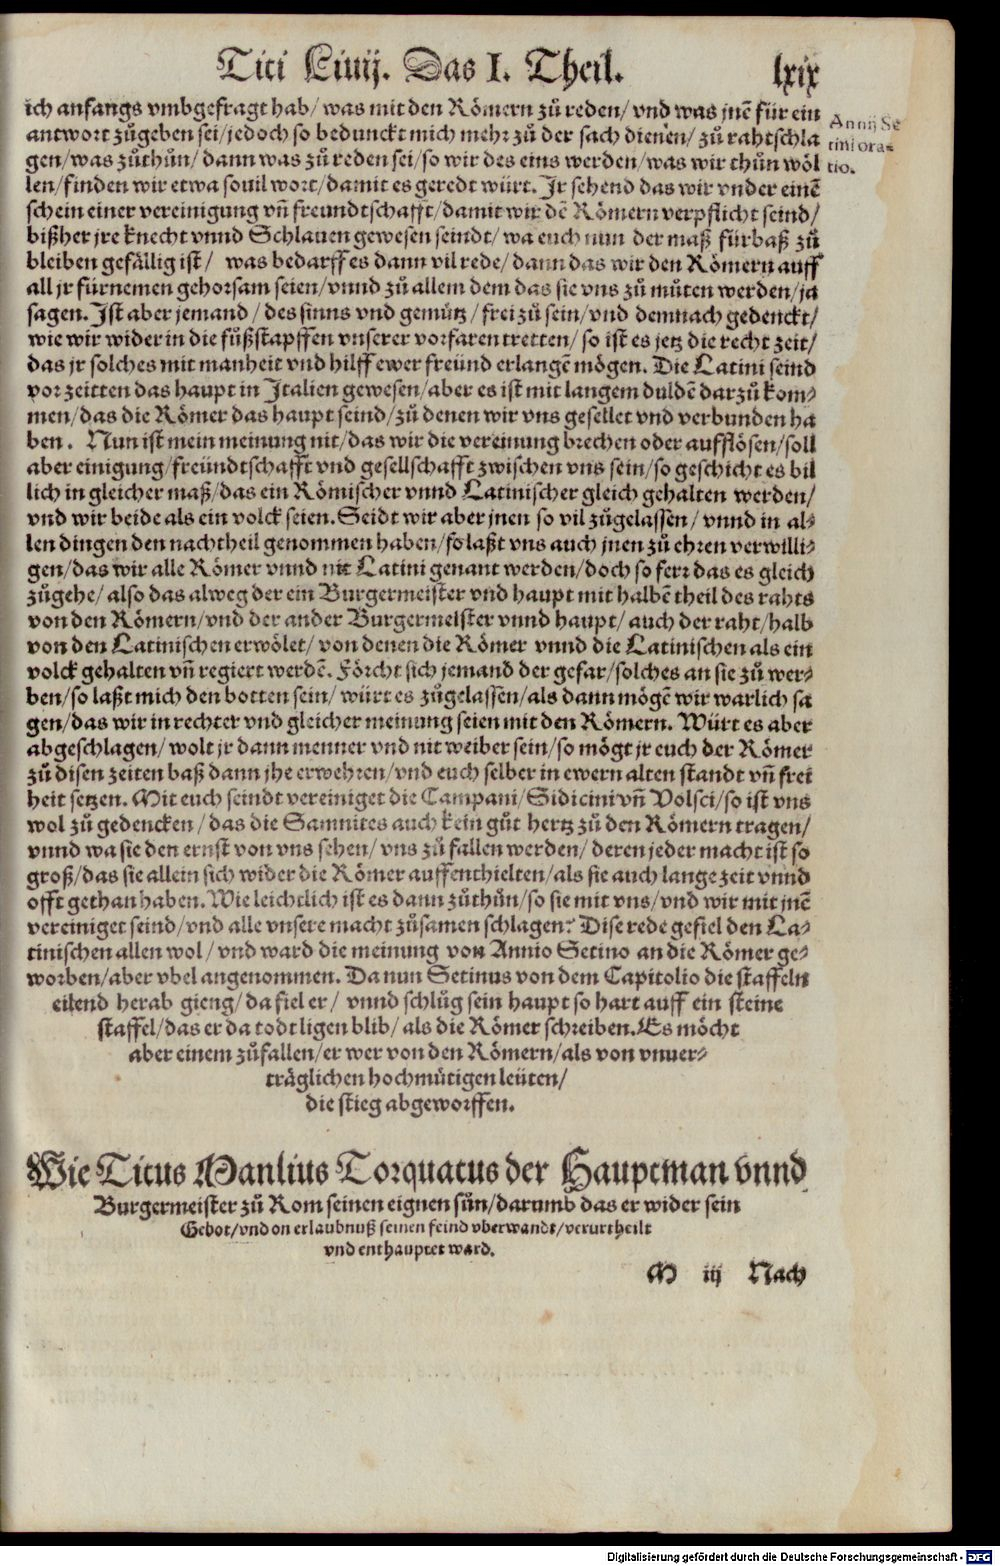 Titi Liuij. Das I. Theil. lxix
ich anfangs vmbgefragt hab/ was mit den Römern zů reden/ vnd was jnē für ein
antwort zůgeben sei/ jedoch so bedunckt mich mehr zů der sach dienen/ zů rahtschla
gen/ was zůthůn/ dann was zů reden sei/ so wir des eins werden/ was wir thůn wöl
len/ finden wir etwa souil wort/ damit es geredt würt. Jr sehend das wir vnder einē
schein einer vereinigung vñ freundtschafft/ damit wir dē Römern verpflicht seind/
bißher jre knecht vnnd Schlauen gewesen seindt/ wa euch nun der maß fürbaß zů
bleiben gefällig ist/ was bedarff es dann vil rede/ dann das wir den Römern auff
all jr fürnemen gehorsam seien/ vnnd zů allem dem das sie vns zů můten werden/ ja
sagen. Ist aber jemand / des sinns vnd gemütz / frei zů sein/ vnd demnach gedenckt/
wie wir wider in die fůßstapffen vnserer vorfaren tretten/ so ist es jetz die recht zeit/
das jr solches mit manheit vnd hilff ewer freünd erlangē mögen. Die Latini seind
vor zeitten das haupt in Italien gewesen/ aber es ist mit langem duldē darzů kom-
men/ das die Römer das haupt seind/ zů denen wir vns gesellet vnd verbunden ha
ben. Nun ist mein meinung nit/ das wir die vereinung brechen oder aufflösen/ soll
aber einigung/ freündtschafft vnd gesellschafft zwischen vns sein/ so geschicht es bil
lich in gleicher maß/ das ein Römischer vnnd Latinischer gleich gehalten werden/
vnd wir beide als ein volck seien. Seidt wir aber jnen so vil zůgelassen/ vnnd in al-
len dingen den nachtheil genommen haben/ so laßt vns auch jnen zů ehren verwilli-
gen/ das wir alle Römer vnnd nit Latini genant werden/ doch so ferr das es gleich
zůgehe/ also das alweg der ein Burgermeister vnd haupt mit halbē theil des rahts
von den Römern/ vnd der ander Burgermeister vnnd haupt/ auch der raht/ halb
von den Latinischen erwölet/ von denen die Römer vnnd die Latinischen als ein
volck gehalten vñ regiert werdē. Förcht sich jemand der gefar/ solches an sie zů wer-
ben/ so laßt mich den botten sein/ würt es zůgelassen/ als dann mögē wir warlich sa
gen/ das wir in rechter vnd gleicher meinung seien mit den Römern. Würt es aber
abgeschlagen/ wolt jr dann menner vnd nit weiber sein/ so mögt jr euch der Römer
zů disen zeiten baß dann jhe erwehren/ vnd euch selber in ewern alten standt vñ frei
heit setzen. Mit euch seindt vereiniget die Campani/ Sidicini vñ Volsci/ so ist vns
wol zů gedencken / das die Samnites auch kein gůt hertz zů den Römern tragen/
vnnd wa sie den ernst von vns sehen/ vns zů fallen werden/ deren jeder macht ist so
groß/ das sie allein sich wider die Römer auffenthielten/ als sie auch lange zeit vnnd
offt gethan haben. Wie leichtlich ist es dann zůthůn/ so sie mit vns/ vnd wir mit jnē
vereiniget seind/ vnd alle vnsere macht zůsamen schlagen? Dise rede gefiel den La-
tinischen allen wol/ vnd ward die meinung von Annio Setino an die Römer ge-
worben/ aber vbel angenommen. Da nun Setinus von dem Capitolio die staffeln
eilend herab gieng/ da fiel er/ vnnd schlůg sein haupt so hart auff ein steine
staffel/ das er da todt ligen blib/ als die Römer schreiben. Es möcht
aber einem zůfallen/ er wer von den Römern/ als von vnuer-
träglichen hochmütigen leüten/
die stieg abgeworffen.
Annij Se
tini ora-
tio.
Wie Titus Manlius Torquatus der Hauptman vnnd
Burgermeister zů Rom seinen eignen sůn/ darumb das er wider sein
Gebot/ vnd on erlaubnuß seinen feind vberwandt/ verurtheilt
vnd enthauptet ward.
M iij Nach
Digitalisierung gefördert durch die Deutsche Forschungsgemeinschaft - DFG